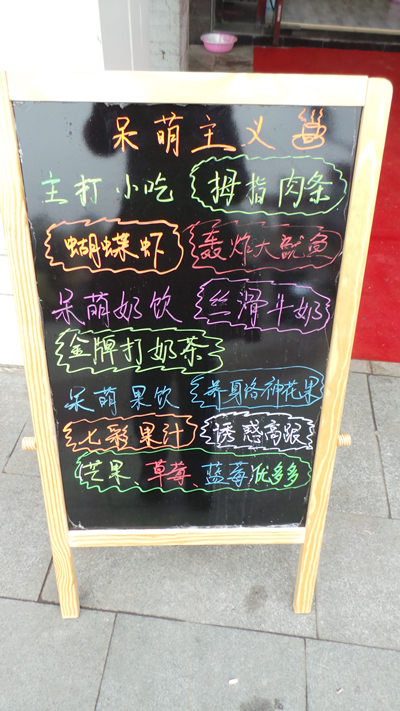 呆萌主义
主打小吃 拇指肉条
蝴蝶虾 轰炸大鱿鱼
呆萌奶饮 丝滑牛奶
金牌打奶茶
呆萌果饮 养身洛神花果
七彩果汁 诱惑高跟
芒果、草莓、蓝莓优多多